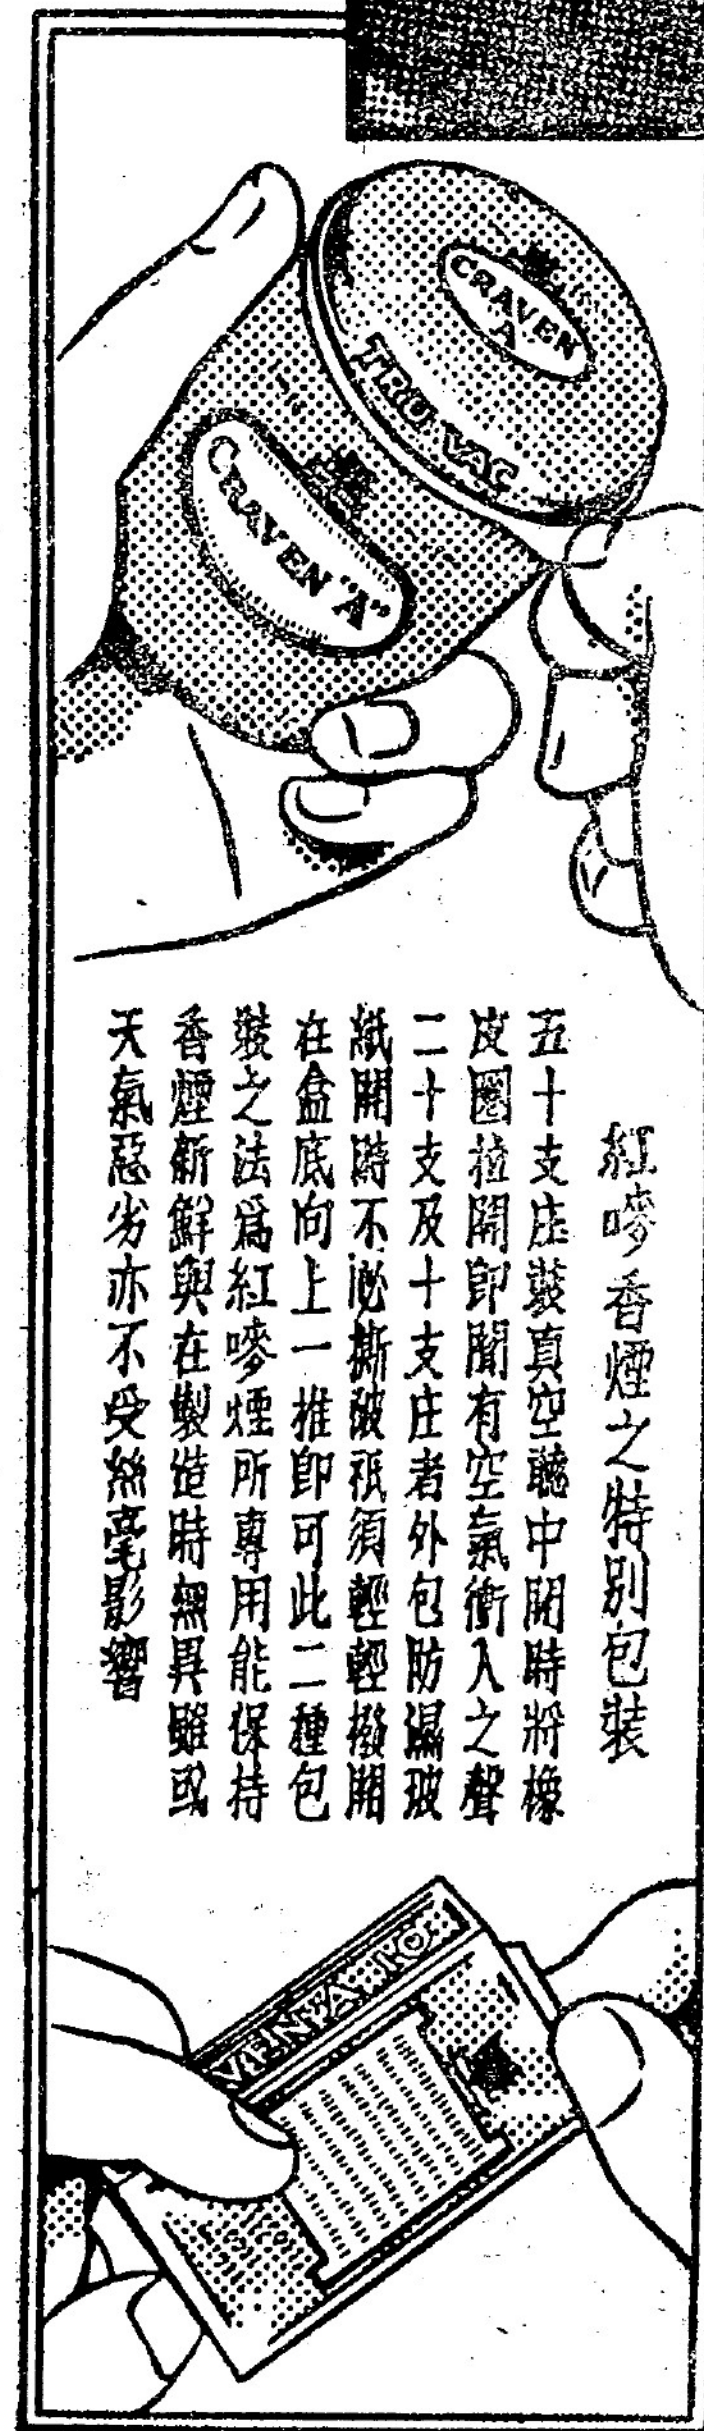 CRAVEN
A
TRU VAC
CRAVEN "A"
紅嘜香煙之特別包裝
五十支庄裝真空聽中開時將橡
皮圈拉開即聞有空氣衝入之聲
二十支及十支庄者外包防濕玻
紙開時不必撕破祇須輕輕撥開
在盒底向上一推即可此二種包
裝之法爲紅嘜煙所專用能保持
香煙新鮮與在製造時無異雖或
天氣惡劣亦不受絲毫影響